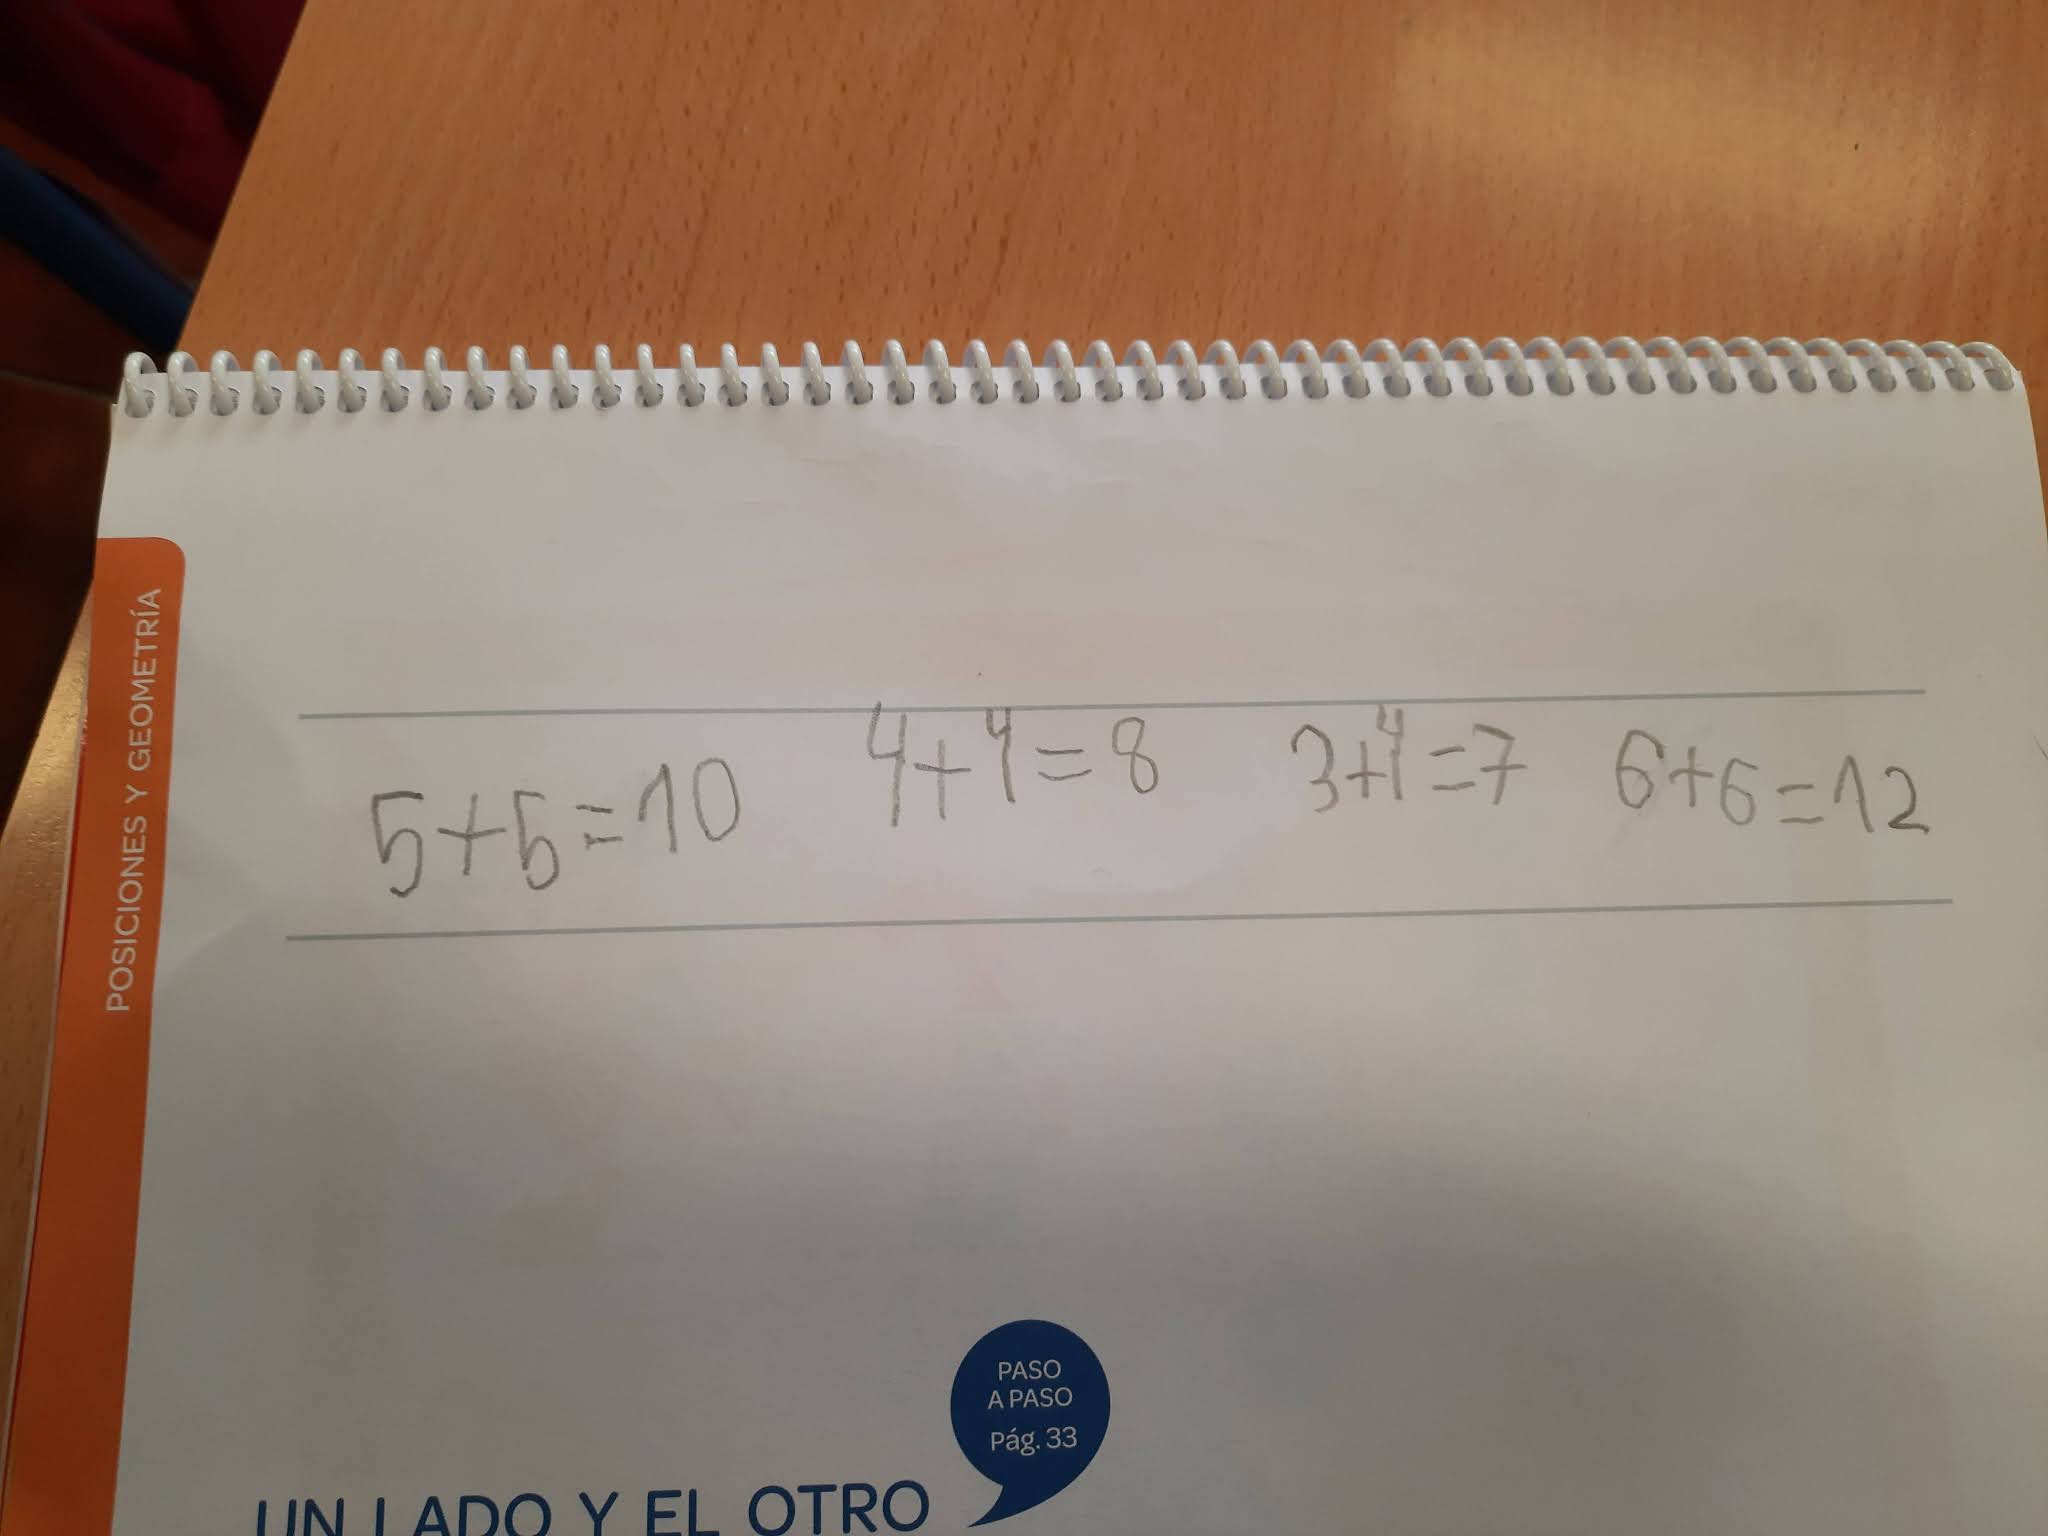 POSICIONES Y GEOMETRÍA
5+5=10 4+4=8 3+4=7 6+6=12
PASO
A PASO
Pág. 33
UN LADO Y EL OTRO